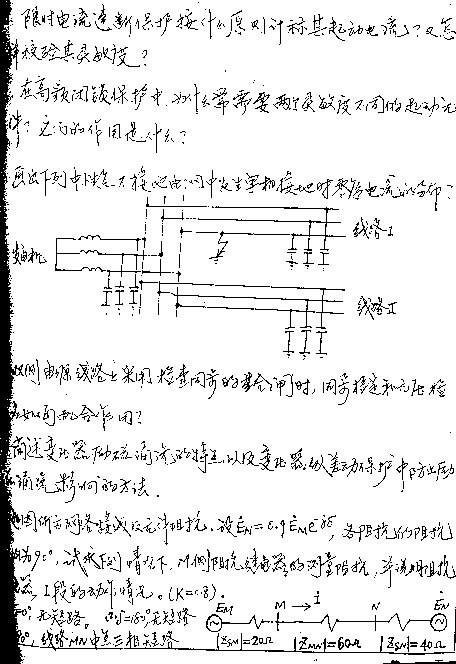 限时电流速断保护按什么原则计称其起动电流？又怎
样校验其灵敏度？
在高频闭锁保护中，为什么常需要两个灵敏度不同的起动元
件？它们的作用是什么？
画出下列中性点不接地电网中发生单相接地时零序电流的分布？
线路I
发电机
线路II
双侧电源线路上采用检查同步的重合闸时，同步检定和无压检
定如何配合作用？
简述变压器励磁涌流的特点以及变压器纵差动保护中防止励
磁涌流影响的方法.
图所示网络接线及元件阻抗. 设ĖN=0.9ĖMe^jδ, 各阻抗的阻抗
角为90°, 试求下列情况下, M侧阻抗继电器的测量阻抗, 并说明阻抗
I段的动作情况. (K=0.8).
δ=0°, 无短路. δ=180°, 无短路
线路MN中点三相短路
ĖM M İ N ĖN
|ZSM|=20Ω |ZMN|=60Ω |ZSN|=40Ω